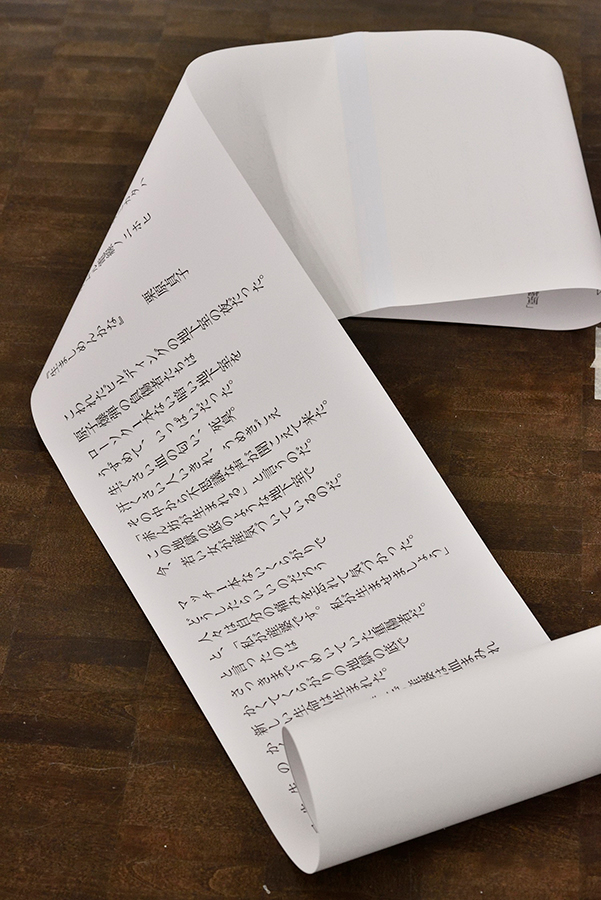 カタハ
電線ノニホヒ
『生ましめんかな』
栗原貞子
こわれたビルディングの地下室の夜だった。
原子爆弾の負傷者たちは
ローソク一本ない暗い地下室を
うずめて、いっぱいだった。
生ぐさい血の匂い、死臭。
汗くさい人いきれ、うめきごえ
その中から不思議な声が聞こえて来た。
「赤ん坊が生まれる」と言うのだ。
この地獄の底のような地下室で
今、若い女が産気づいているのだ。
マッチ一本ないくらがりで
どうしたらいいのだろう
人々は自分の痛みを忘れて気づかった。
と、「私が産婆です。私が生ませましょう」
と言ったのは
さっきまでうめいていた重傷者だ。
かくてくらがりの地獄の底で
新しい生命は生まれた。
か 産婆は血まみれ
の
生